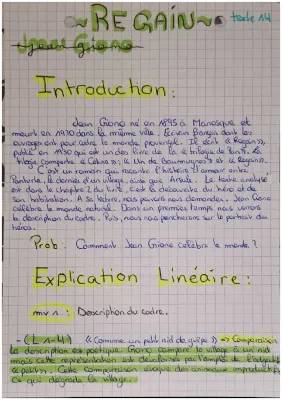 ~REGAIN~
texte 14
Jean Giono
Introduction:
Jean Giono né en 1895 à Manosque et
meurt en 1970 dans la même ville. Écrivain français dont les
ouvrages ont pour cadre le monde provençal. Il écrit « Regain »,
publié en 1930 qui est un des livres de la trilogie de Pan. La
trilogie comporte « Colline », « Un de Baumugnes » et « Regain ».
C'est un roman qui raconte l'histoire d'amour entre
Panturle, le dernier d'un village, ainsi que Arsule. Le texte analysé
est dans le chapitre 2 du livre, c'est la découverte du héros et de
son habitation. A sa lecture, nous pouvons nous demander: Jean Giono
célèbre le monde naturel. Dans un premier temps nous verrons
la description du cadre. Puis, nous nous pencherons sur le portrait du
héros.
Prob: Comment Jean Giono célèbre le monde?
Explication Linéaire:
mv 1: Description du cadre.
- (L 1-4) « Comme un petit nid de guêpes » => Comparaison
la description est poétique. Giono compare le village à un nid
mais cette représentation est dévalorisée par l'emploi de l'adjectif
« petit ». Cette comparaison évoque des animaux
ce qui dégrade le village.